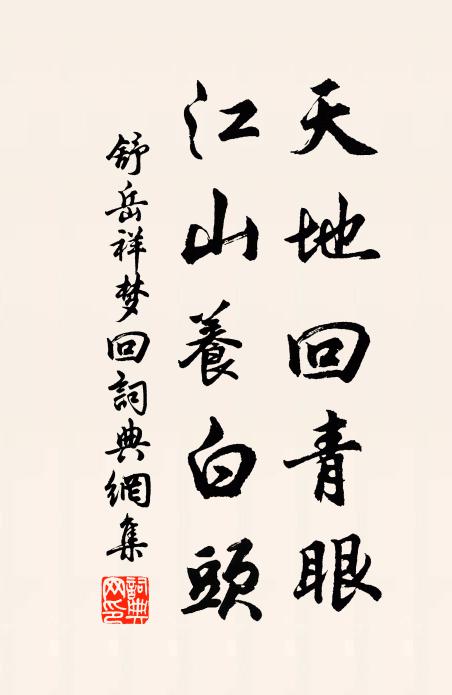 天地回青眼
江山養白頭
舒岳祥梦回詞典網集
詞典網印